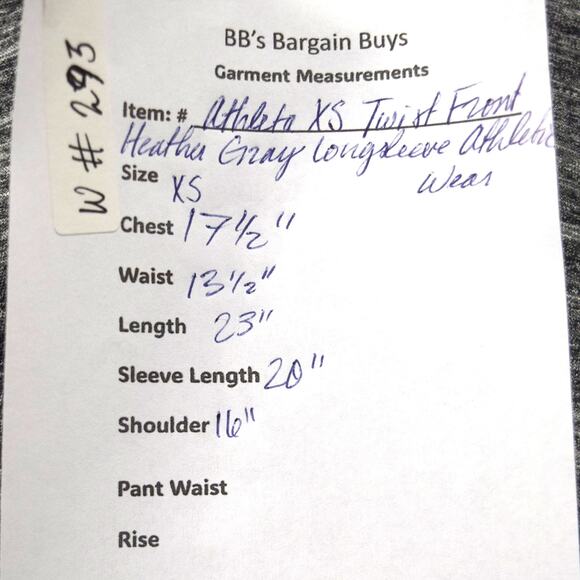 W # 293
BB's Bargain Buys
Garment Measurements
Item: # Athleta XS Twist Front
Heather Gray Longsleeve Athletic
Wear
Size XS
Chest 17 1/2"
Waist 13 1/2"
Length 23"
Sleeve Length 20"
Shoulder 16"
Pant Waist
Rise